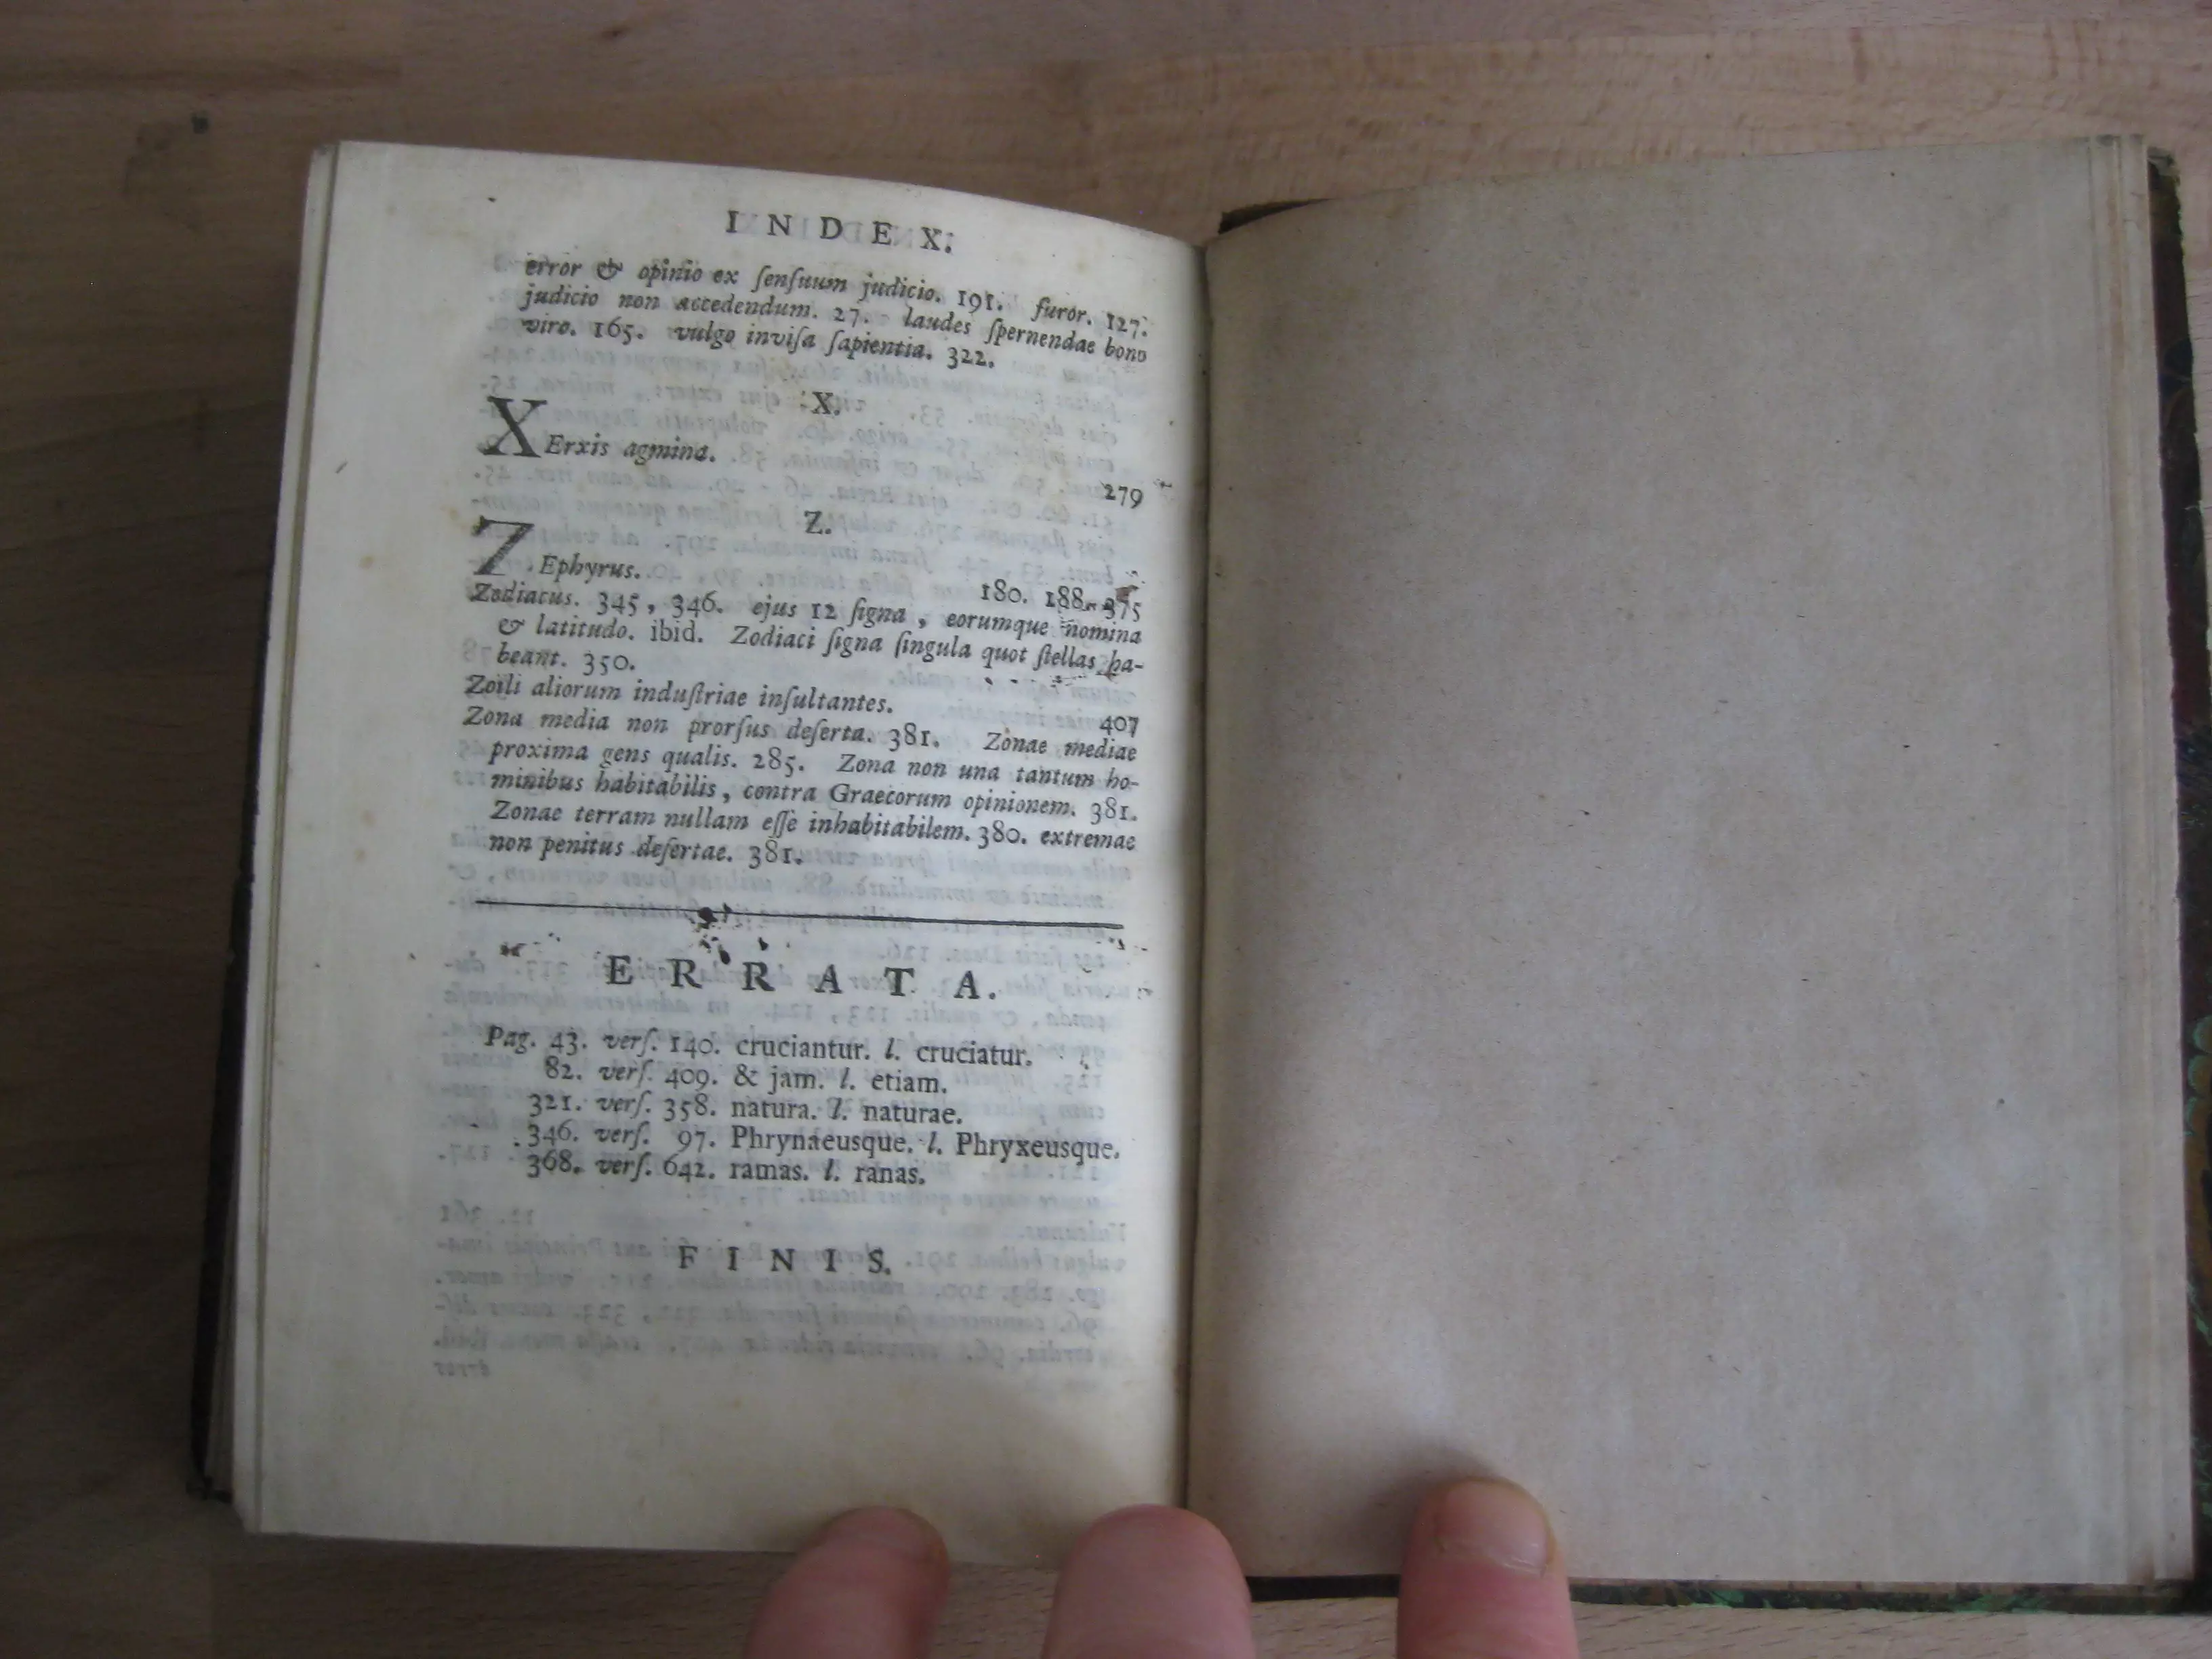 INDEX.
error & opinio ex ſenſuum judicio. 191. furor. 127.
judicio non accedendum. 27. laudes ſpernendae bono
viro. 165. vulgo inviſa ſapientia. 322.
X.
XErxis agmina. 279
Z.
ZEphyrus. 180. 188. 375
Zodiacus. 345, 346. ejus 12 ſigna, eorumque nomina
& latitudo. ibid. Zodiaci ſigna ſingula quot ſtellas ha-
beant. 350.
Zoili aliorum induſtriae inſultantes. 407
Zona media non prorſus deſerta. 381. Zonae mediae
proxima gens qualis. 285. Zona non una tantum ho-
minibus habitabilis, contra Graecorum opinionem. 381.
Zonae terram nullam eſſe inhabitabilem. 380. extremae
non penitus deſertae. 381.
ERRATA.
Pag. 43. verſ. 140. cruciantur. l. cruciatur.
82. verſ. 409. & jam. l. etiam.
321. verſ. 358. natura. l. naturae.
346. verſ. 97. Phrynaeusque. l. Phryxeusque.
368. verſ. 642. ramas. l. ranas.
FINIS.